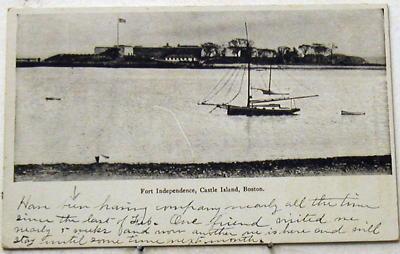 Fort Independence, Castle Island, Boston.
Have been having company nearly all the time
since the last of Feb. One friend visited me
nearly 5 weeks and now another one is here and will
stay until some time next month.